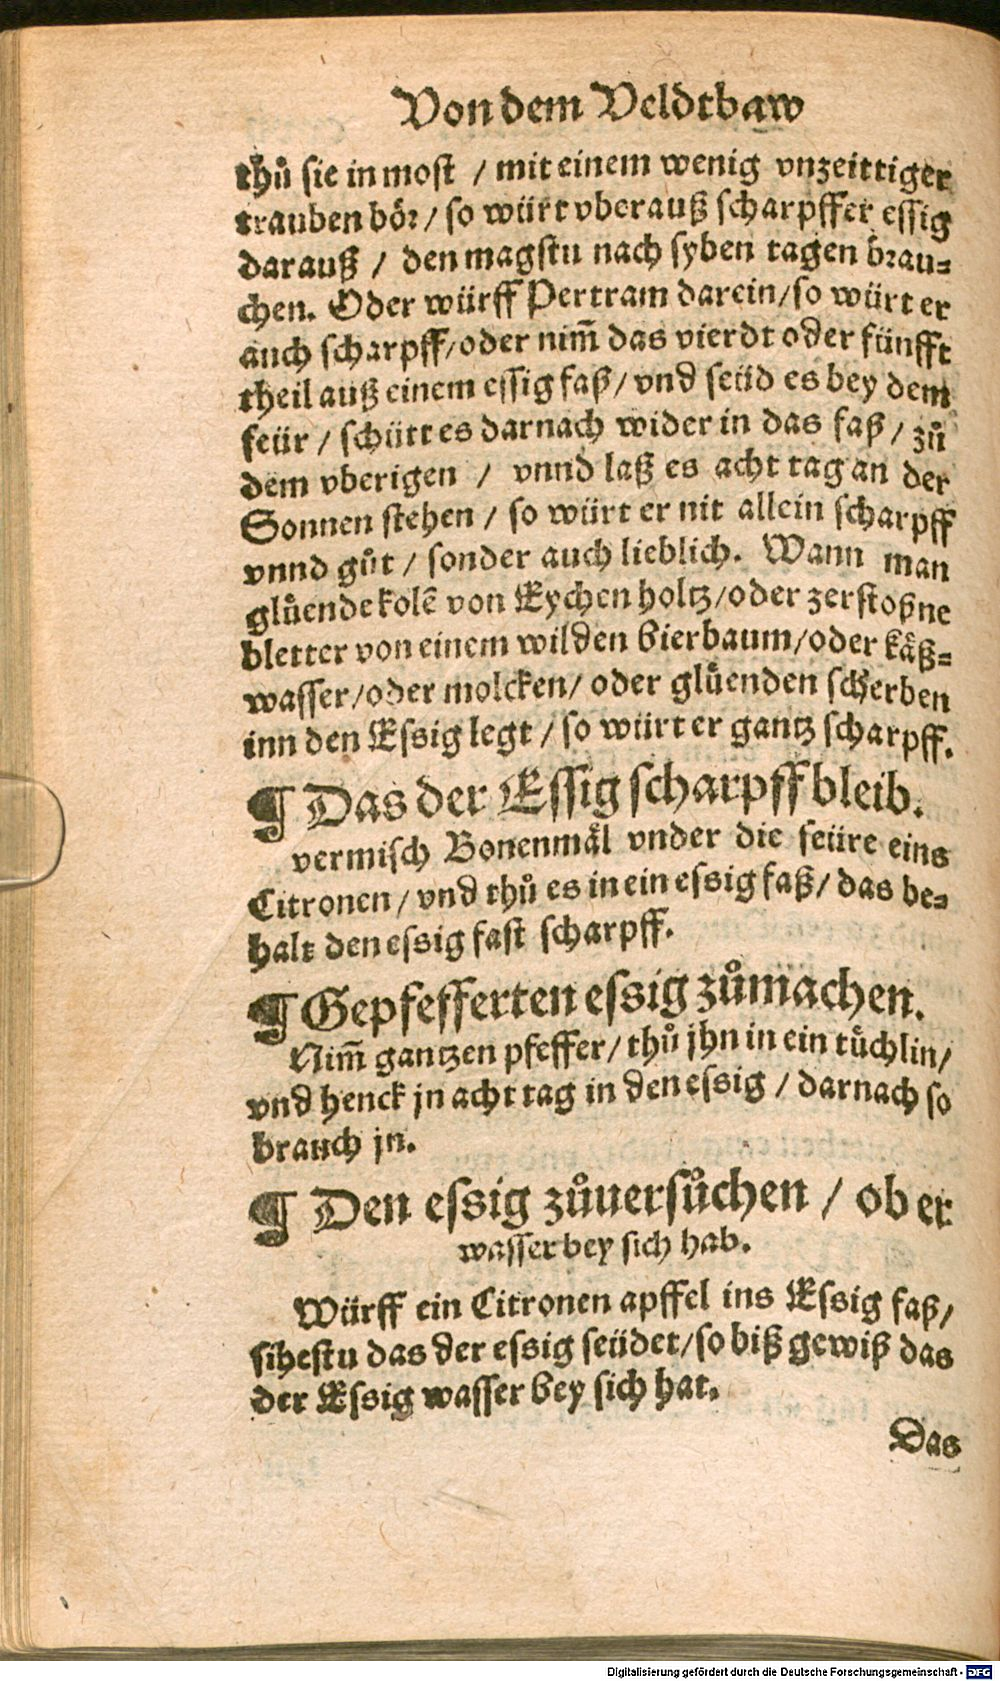 Von dem Veldtbaw
thuͦ sie in most / mit einem wenig vnzeittiger
trauben boͤr / so würt vberauß scharpffer essig
darauß / den magstu nach syben tagen brau-
chen. Oder würff Pertram darein / so würt er
auch scharpff / oder nim̃ das vierdt oder fünfft
theil auß einem essig faß / vnd seüd es bey dem
feür / schütt es darnach wider in das faß / zuͦ
dem vberigen / vnnd laß es acht tag an der
Sonnen stehen / so würt er nit allein scharpff
vnnd guͦt / sonder auch lieblich. Wann man
gluͤende kolẽ von Eychen holtz / oder zerstoßne
bletter von einem wilden bierbaum / oder kaͤß-
wasser / oder molcken / oder gluͤenden scherben
inn den Essig legt / so würt er gantz scharpff.
¶ Das der Essig scharpff bleib.
vermisch Bonenmaͤl vnder die feüre eins
Citronen / vnd thuͦ es in ein essig faß / das be-
halt den essig fast scharpff.
¶ Gepfefferten essig zuͦmachen.
Nim̃ gantzen pfeffer / thuͦ jhn in ein tuͤchlin /
vnd henck jn acht tag in den essig / darnach so
brauch jn.
¶ Den essig zuͦuersuͦchen / ob er
wasser bey sich hab.
Würff ein Citronen apffel ins Essig faß /
sihestu das der essig seüdet / so biß gewiß das
der Essig wasser bey sich hat.
Das
Digitalisierung gefördert durch die Deutsche Forschungsgemeinschaft - DFG